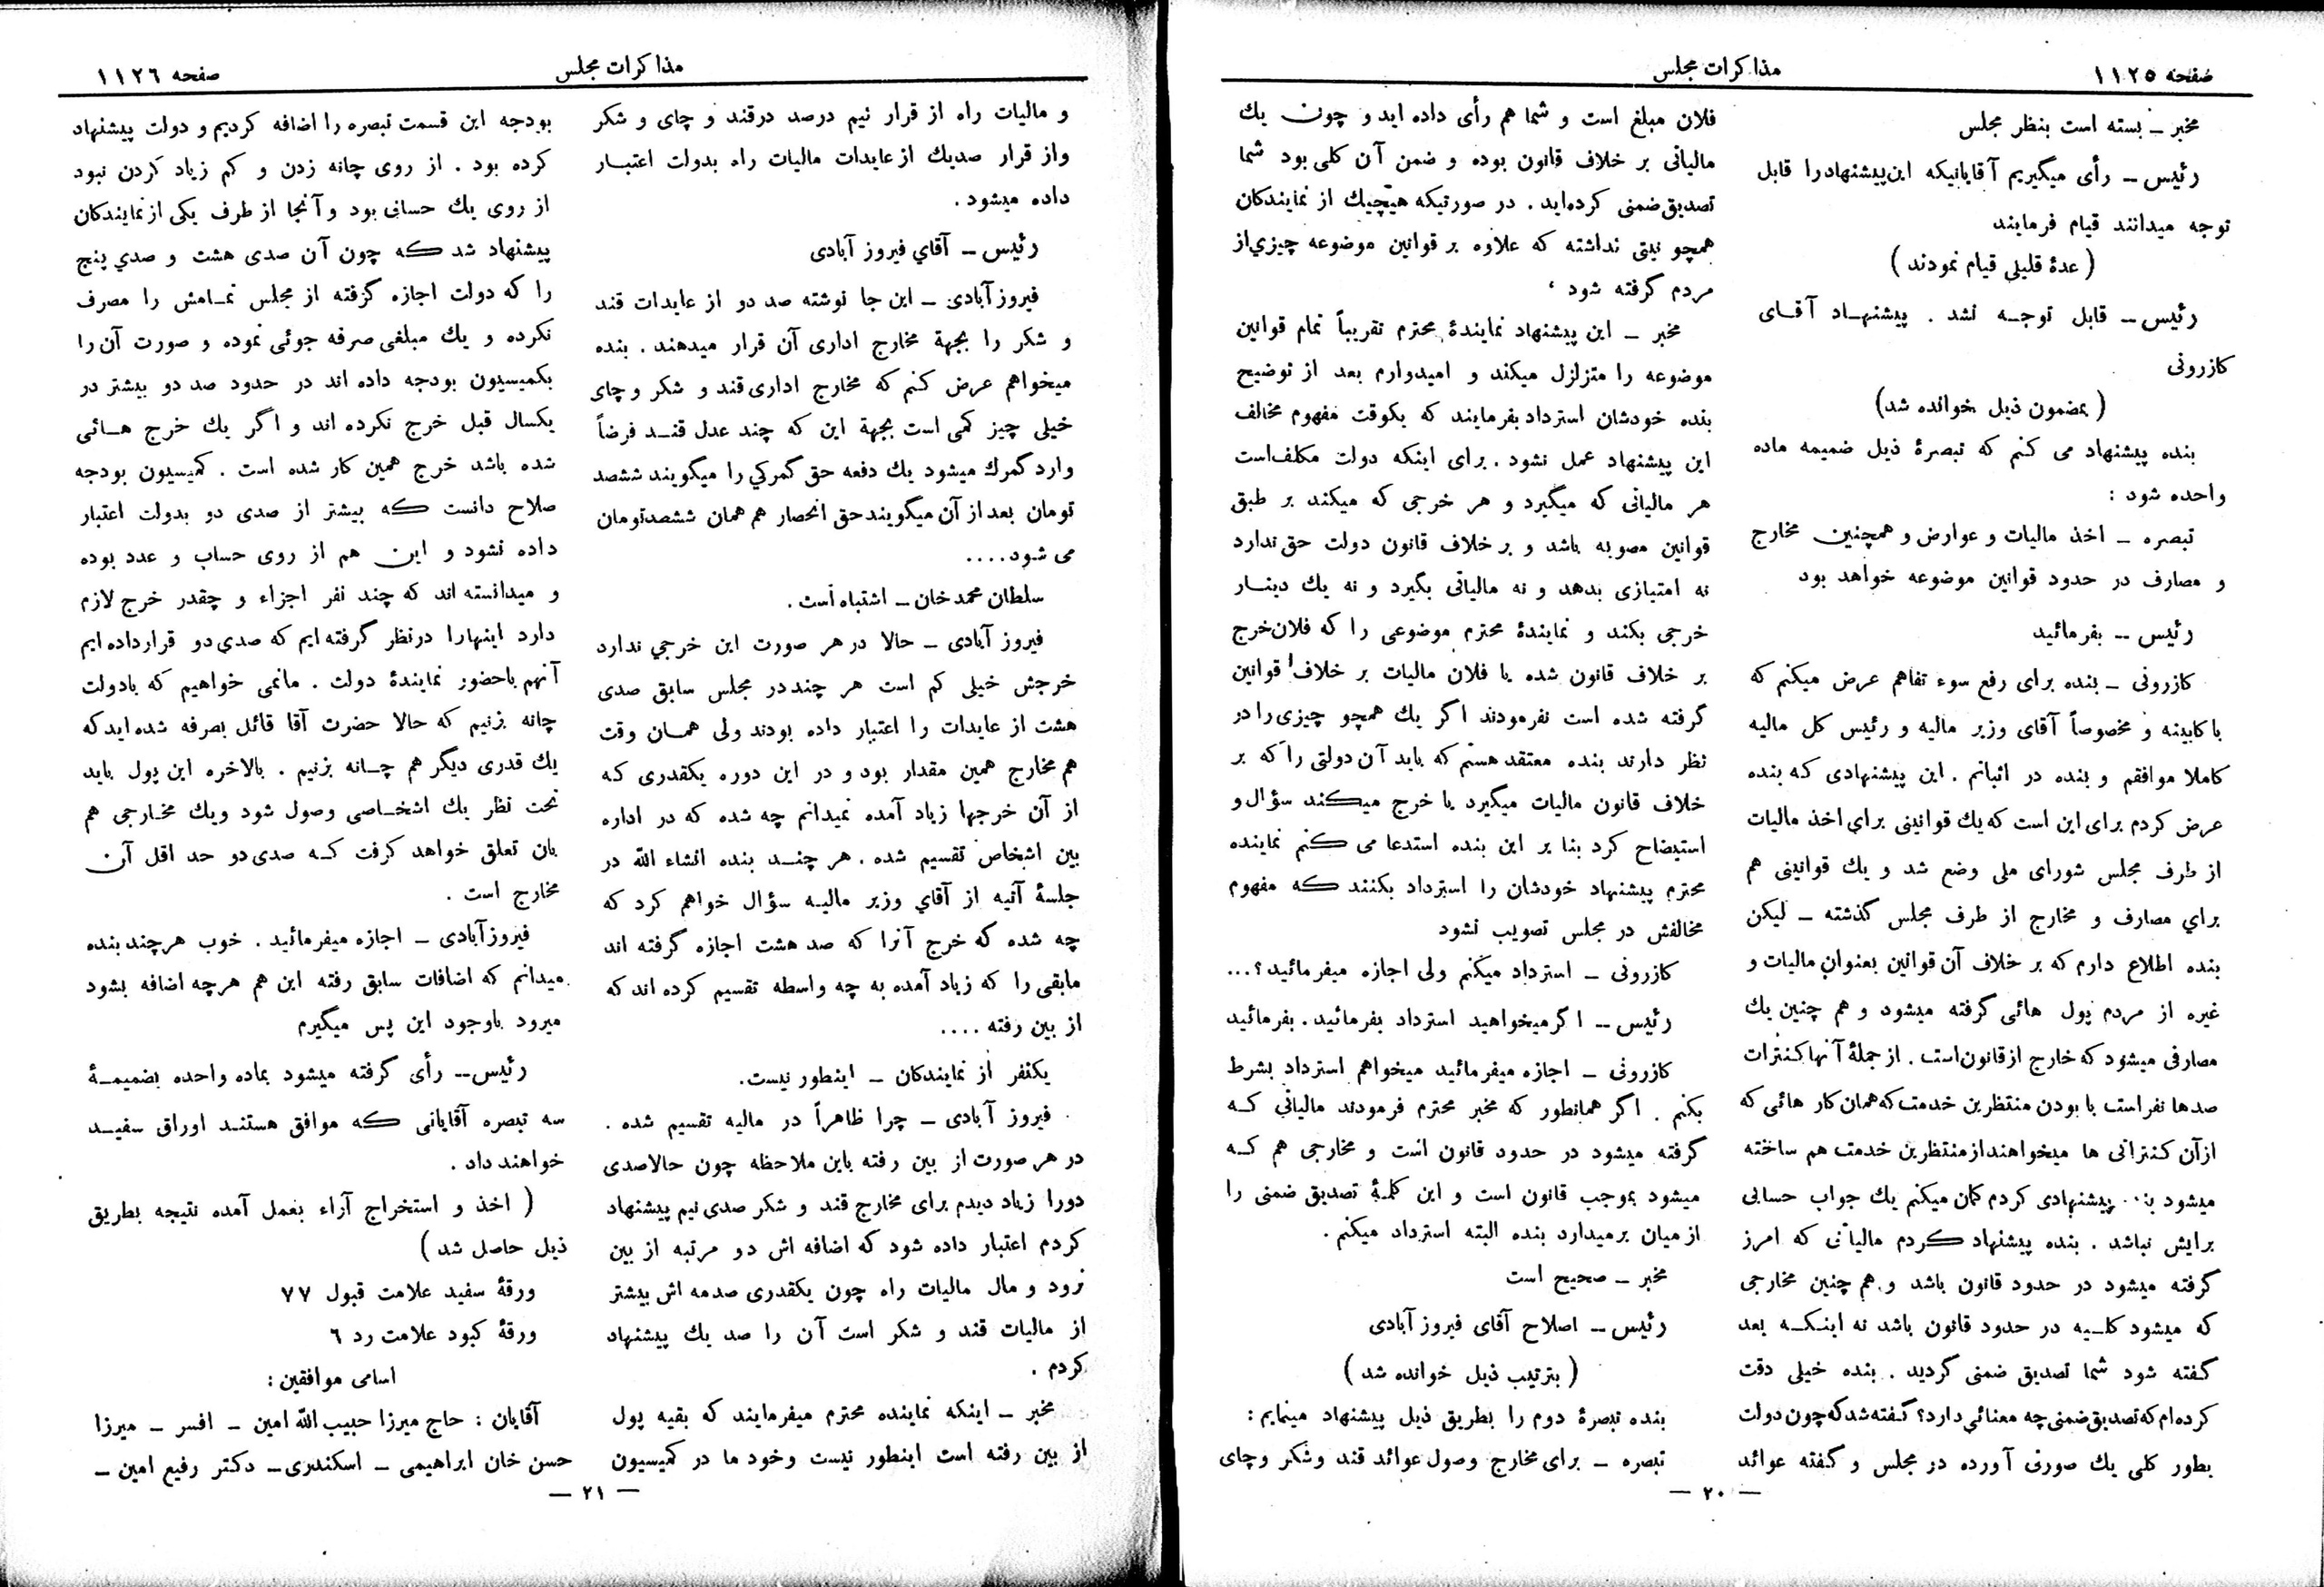 صفحه ۱۱۲۵
مذاکرات مجلس
مخبر ــ بسته است بنظر مجلس
رئیس ــ رأی میگیریم آقایانیکه این پیشنهاد را قابل
توجه میدانند قیام فرمایند
( عدهٔ قلیلی قیام نمودند )
رئیس ــ قابل توجه نشد . پیشنهاد آقای
کازرونی
( بمضمون ذیل خوانده شد)
بنده پیشنهاد می کنم که تبصرهٔ ذیل ضمیمه ماده
واحده شود :
تبصره ــ اخذ مالیات و عوارض و همچنین مخارج
و مصارف در حدود قوانین موضوعه خواهد بود
رئیس ــ بفرمائید
کازرونی ــ بنده برای رفع سوء تفاهم عرض میکنم که
با کابینه و مخصوصاً آقای وزیر مالیه و رئیس کل مالیه
کاملا موافقم و بنده در اثباتم . این پیشنهادی که بنده
عرض کردم برای این است که یك قوانینی برای اخذ مالیات
از طرف مجلس شورای ملی وضع شد و یك قوانینی هم
برای مصارف و مخارج از طرف مجلس گذشته ــ لیکن
بنده اطلاع دارم که بر خلاف آن قوانین بعنوان مالیات و
غیره از مردم پول هائی گرفته میشود و هم چنین یك
مصارفی میشود که خارج از قانون است . از جملهٔ آنها کنترات
صدها نفر است با بودن منتظرین خدمت که همان کار هائی که
از آن کنتراتی ها میخواهند از منتظرین خدمت هم ساخته
میشود پیشنهادی کردم گمان میکنم یك جواب حسابی
برایش نباشد . بنده پیشنهاد کردم مالیاتی که امرز
گرفته میشود در حدود قانون باشد و هم چنین مخارجی
که میشود کلیه در حدود قانون باشد نه اینکه بعد
گفته شود شما تصدیق ضمنی گردید . بنده خیلی دقت
کرده ام که تصدیق ضمنی چه معنائی دارد؟ گفته شد که چون دولت
بطور کلی یك صورتی آورده در مجلس و گفته عوائد
فلان مبلغ است و شما هم رأی داده اید و چون یك
مالیاتی بر خلاف قانون بوده و ضمن آن کلی بود شما
تصدیق ضمنی کرده‌اید . در صورتیکه هیچیك از نمایندگان
همچو نیتی نداشته که علاوه بر قوانین موضوعه چیزی از
مردم گرفته شود ،
مخبر ــ این پیشنهاد نمایندهٔ محترم تقریباً تمام قوانین
موضوعه را متزلزل میکند و امیدوارم بعد از توضیح
بنده خودشان استرداد بفرمایند که یکوقت مفهوم مخالف
این پیشنهاد عمل نشود . برای اینکه دولت مکلف است
هر مالیاتی که میگیرد و هر خرجی که میکند بر طبق
قوانین مصوبه باشد و بر خلاف قانون دولت حق ندارد
نه امتیازی بدهد و نه مالیاتی بگیرد و نه یك دینار
خرجی بکند و نمایندهٔ محترم موضوعی را که فلان خرج
بر خلاف قانون شده یا فلان مالیات بر خلاف قوانین
گرفته شده است نفرمودند اگر یك همچو چیزی را در
نظر دارند بنده معتقد هستم که باید آن دولتی را که بر
خلاف قانون مالیات میگیرد یا خرج میکند سؤال و
استیضاح کرد بنا بر این بنده استدعا می کنم نماینده
محترم پیشنهاد خودشان را استرداد بکنند که مفهوم
مخالفش در مجلس تصویب نشود
کازرونی ــ استرداد میکنم ولی اجازه میفرمائید؟...
رئیس ــ اگر میخواهید استرداد بفرمائید . بفرمائید
کازرونی ــ اجازه میفرمائید میخواهم استرداد بشرط
بکنم . اگر همانطور که مخبر محترم فرمودند مالیاتی که
گرفته میشود در حدود قانون است و مخارجی هم که
میشود بموجب قانون است و این کلمهٔ تصدیق ضمنی را
از میان برمیدارد بنده البته استرداد میکنم .
مخبر ــ صحیح است
رئیس ــ اصلاح آقای فیروز آبادی
( بترتیب ذیل خوانده شد )
بنده تبصرهٔ دوم را بطریق ذیل پیشنهاد مینمایم :
تبصره ــ برای مخارج وصول عوائد قند و شکر و چای
ــ ۲۰ ــ
مذاکرات مجلس
صفحه ۱۱۲۶
و مالیات راه از قرار نیم درصد در قند و چای و شکر
و از قرار صدیك از عایدات مالیات راه بدولت اعتبار
داده میشود .
رئیس ــ آقای فیروز آبادی
فیروز آبادی ــ این جا نوشته صد دو از عایدات قند
و شکر را بجههٔ مخارج اداری آن قرار میدهند . بنده
میخواهم عرض کنم که مخارج اداری قند و شکر و چای
خیلی چیز کمی است بجههٔ این که چند عدل قند فرضاً
وارد گمرك میشود یك دفعه حق گمرکی را میگویند ششصد
تومان بعد از آن میگویند حق انحصار هم همان ششصد تومان
می شود....
سلطان محمد خان ــ اشتباه است .
فیروز آبادی ــ حالا در هر صورت این خرجی ندارد
خرجش خیلی کم است هر چند در مجلس سابق صدی
هشت از عایدات را اعتبار داده بودند ولی همان وقت
هم مخارج همین مقدار بود و در این دوره یکقدری که
از آن خرجها زیاد آمده نمیدانم چه شده که در اداره
بین اشخاص تقسیم شده . هر چند بنده انشاء الله در
جلسهٔ آتیه از آقای وزیر مالیه سؤال خواهم کرد که
چه شده که خرج آنرا که صد هشت اجازه گرفته اند
مابقی را که زیاد آمده به چه واسطه تقسیم کرده اند که
از بین رفته ....
یکنفر از نمایندگان ــ اینطور نیست.
فیروز آبادی ــ چرا ظاهراً در مالیه تقسیم شده .
در هر صورت از بین رفته باین ملاحظه چون حالا صدی
دو را زیاد دیدم برای مخارج قند و شکر صدی نیم پیشنهاد
کردم اعتبار داده شود که اضافه اش دو مرتبه از بین
نرود و مال مالیات راه چون یکقدری صدمه اش بیشتر
از مالیات قند و شکر است آن را صد یك پیشنهاد
کردم .
مخبر ــ اینکه نماینده محترم میفرمایند که بقیه پول
از بین رفته است اینطور نیست و خود ما در کمیسیون
بودجه این قسمت تبصره را اضافه کردیم و دولت پیشنهاد
کرده بود . از روی چانه زدن و کم زیاد کردن نبود
از روی یك حسابی بود و آنجا از طرف یکی از نمایندگان
پیشنهاد شد که چون آن صدی هشت و صدی پنج
را که دولت اجازه گرفته از مجلس تمامش را مصرف
نکرده و یك مبلغی صرفه جوئی نموده و صورت آن را
بکمیسیون بودجه داده اند در حدود صد دو بیشتر در
یکسال قبل خرج نکرده اند و اگر یك خرج هائی
شده باشد خرج همین کار شده است . کمیسیون بودجه
صلاح دانست که بیشتر از صدی دو بدولت اعتبار
داده نشود و این هم از روی حساب و عدد بوده
و میدانسته اند که چند نفر اجزاء و چقدر خرج لازم
دارد اینها را در نظر گرفته ایم که صدی دو قرار داده ایم
آنهم با حضور نمایندهٔ دولت . ما نمی خواهیم که با دولت
چانه بزنیم که حالا حضرت آقا قائل بصرفه شده اید که
یك قدری دیگر هم چانه بزنیم . بالاخره این پول باید
تحت نظر یك اشخاصی وصول شود و یك مخارجی هم
بان تعلق خواهد گرفت که صدی دو حد اقل آن
مخارج است .
فیروز آبادی ــ اجازه میفرمائید . خوب هر چند بنده
میدانم که اضافات سابق رفته این هم هر چه اضافه بشود
میرود باوجود این پس میگیرم
رئیس ــ رأی گرفته میشود بماده واحده بضمیمهٔ
سه تبصره آقایانی که موافق هستند اوراق سفید
خواهند داد .
( اخذ و استخراج آراء بعمل آمده نتیجه بطریق
ذیل حاصل شد )
ورقهٔ سفید علامت قبول ۷۷
ورقهٔ کبود علامت رد ۶
اسامی موافقین :
آقایان : حاج میرزا حبیب الله امین ــ افسر ــ میرزا
حسن خان ابراهیمی ــ اسکندری ــ دکتر رفیع امین ــ
ــ ۲۱ ــ